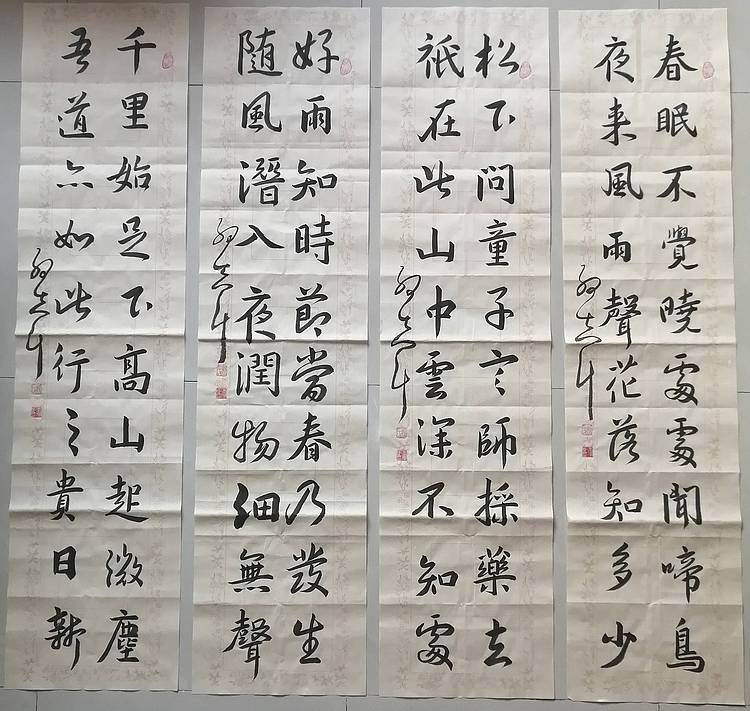 春眠不覺曉處處聞啼鳥
夜来風雨聲花落知多少
松下問童子言師採藥去
祇在此山中雲深不知處
好雨知時節當春乃發生
随風潛入夜潤物細無聲
千里始足下高山起微塵
吾道亦如此行之貴日新